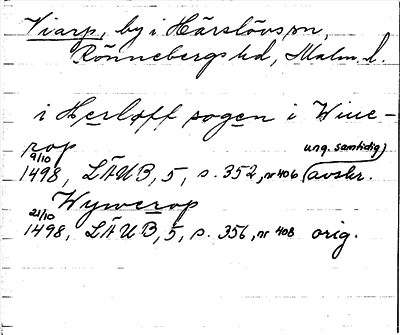 Viarp, by i Härslövs sn,
Rönnebergs hd, Malm. l.
i Herloff sogen i Wiue-
rop
ung. samtidig)
9/10
1498, LÄUB, 5, s. 352, nr 406 (avskr.
Wywerop
21/10
1498, LÄUB, 5, s. 356, nr 408 orig.